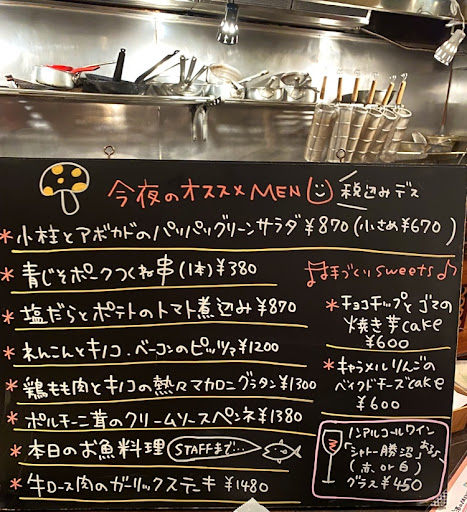 今夜のオススメMENU 税込みデス
*小柱とアボカドのパリパリグリーンサラダ¥870(小さめ¥670)
*青じそポークつくね串(1本)¥380
*塩だらとポテトのトマト煮込み¥870
*れんこんとキノコ.ベーコンのピッツァ¥1200
*鶏もも肉とキノコの熱々マカロニグラタン¥1300
*ポルチーニ茸のクリームソースペンネ¥1380
*本日のお魚料理 STAFFまで...
*牛ロース肉のガーリックステーキ ¥1480
手づくりsweets
*チョコチップとゴマの
焼き芋cake
¥600
*キャラメルりんごの
ベイクドチーズcake
¥600
ノンアルコールワイン
「シャトー勝沼」あるよ
(赤or白)
グラス¥450